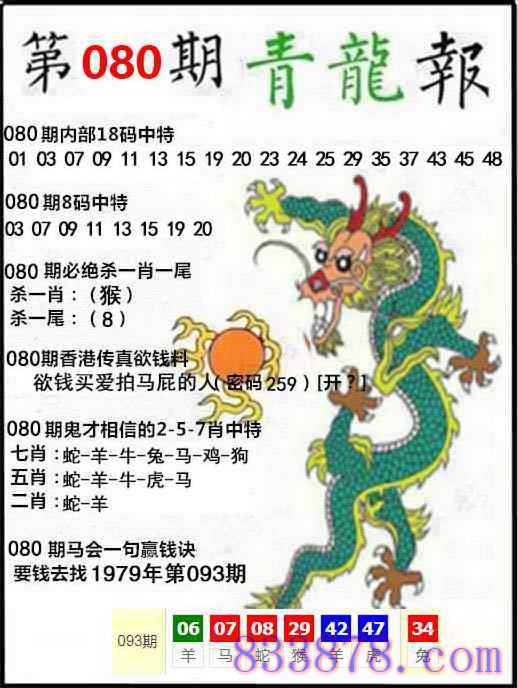 第080期青龍報
080期内部18码中特
01 03 07 09 11 13 15 19 20 23 24 25 29 35 37 43 45 48
080期8码中特
03 07 09 11 13 15 19 20
080期必绝杀一肖一尾
杀一肖：（猴）
杀一尾：（8）
080期香港传真欲钱料
欲钱买爱拍马屁的人(密码259)[开?]
080期鬼才相信的2-5-7肖中特
七肖：蛇-羊-牛-兔-马-鸡-狗
五肖：蛇-羊-牛-虎-马
二肖：蛇-羊
080期马会一句赢钱诀
要钱去找1979年第093期
093期 06 07 08 29 42 47 34
羊 马 蛇 猴 羊 虎 兔
833878.com